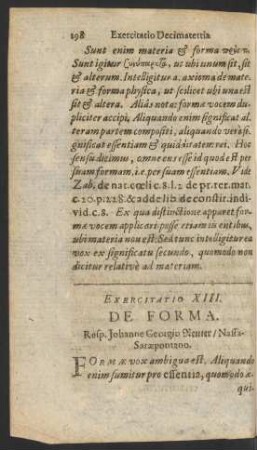 198 Exercitatio Decimatertia
Sunt enim materia & forma
Sunt igitur ut ubi unum sit, sit
& alterum. Intelligitur a. axioma de mate-
ria & forma physica, ut scilicet ubi una est
sit & altera. Aliàs nota: formæ vocem du-
pliciter accipi, Aliquando enim significat al-
teram partem compositi, aliquando verò si-
gnificat essentiam & quidditatem rei. Hoc
sensu dicimus, omne ens esse id quod est per
suam formam, i.e. per suam essentiam. Vide
Zab. de nat. cœli c. 8. l. 2. de pr. rer. mat.
c. 10. p. 228. & adde lib. de constit. indi-
vid. c. 8. Ex qua distinctione apparet for-
mæ vocem applicari posse etiam in entibus,
ubi materia non est. Sed tunc intelligitur ea
vox ex significatu secundo, quomodo non
dicitur relativè ad materiam.
EXERCITATIO XIII.
DE FORMA.
Resp. Johanne Georgio Reuter / Nassa-
Saræpontano.
FORMÆ vox ambigua est. Aliquando
enim sumitur pro essentia, quomodo æ-
qui-